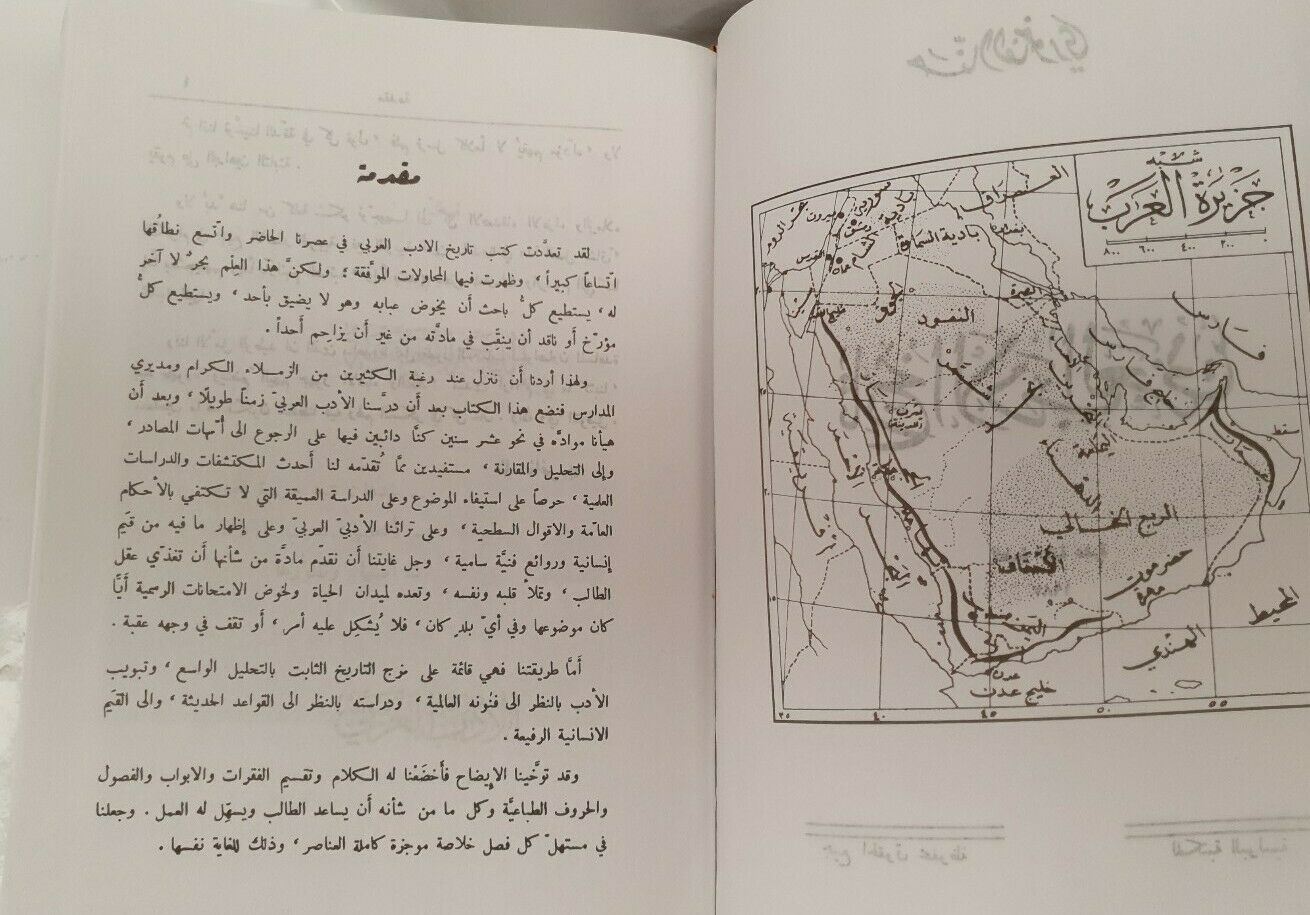 مقدمة
لقد تعدَّدت كتب تاريخ الادب العربي في عصرنا الحاضر واتّسع نطاقُها
اتّساعاً كبيراً ، وظهرت فيها المحاولات الموفّقة ؛ ولكنَّ هذا العِلْم بحرٌ لا آخر
له ، يستطيع كلُّ باحث أن يخوض عبابه وهو لا يضيق بأحد ، ويستطيع كلُّ
مؤرّخ أو ناقد أن ينقِّب في مادّته من غير أن يزاحِم أحداً .
ولهذا أردنا أن ننزل عند رغبة الكثيرين من الزملاء الكرام ومديري
المدارس فنضع هذا الكتاب بعد أن درَّسنا الأدب العربيّ زمناً طويلًا ، وبعد أن
هيأنا موادَّه في نحو عشر سنين كنَّا دائبين فيها على الرجوع الى أُمّهات المصادر ،
وإلى التحليل والمقارنة ، مستفيدين ممّا تُقدّمه لنا أحدث المكتشفات والدراسات
العلمية ، حرصاً على استيفاء الموضوع وعلى الدراسة العميقة التي لا تكتفي بالأحكام
العامّة والاقوال السطحية ، وعلى تراثنا الأدبيّ العربيّ وعلى إظهار ما فيه من قيَم
إنسانية وروائع فنيَّة سامية ، وجل غايتنا أن نقدّم مادَّة من شأنها أن تغذّي عقل
الطالب ، وتملأ قلبه ونفسه ، وتعده لميدان الحياة ولخوض الامتحانات الرسمية أيًّا
كان موضوعها وفي أيّ بلدٍ كان ، فلا يُشكِل عليه أمر ، أو تقف في وجهه عقبة .
أمَّا طريقتنا فهي قائمة على مزج التاريخ الثابت بالتحليل الواسع ، وتبويب
الأدب بالنظر الى فنُونه العالمية ، ودراسته بالنظر الى القواعد الحديثة ، والى القيَم
الانسانية الرفيعة .
وقد توخَّينا الإيضاح فأخضَعْنا له الكلام وتقسيم الفقرات والابواب والفصول
والحروف الطباعيَّة وكل ما من شأنه أن يساعد الطالب ويسهّل له العمل . وجعلنا
في مستهلّ كل فصل خلاصة موجزة كاملة العناصر ، وذلك للغاية نفسها .
شبه
جزيرة العرب
٠ ٢٠٠ ٤٠٠ ٦٠٠ ٨٠٠
العراق
سورية
بيروت
دمشق
بغداد
بادية السماوة
القدس
عمان
البصرة
النفود
فارس
خليج فارس
نجد
يثرب
اليمامة
الدهناء
الربع الخالي
الأحقاف
حضرموت
مهرة
اليمن
عدن
خليج عدن
المحيط
الهندي
٣٥ ٤٠ ٤٥ ٥٠ ٥٥